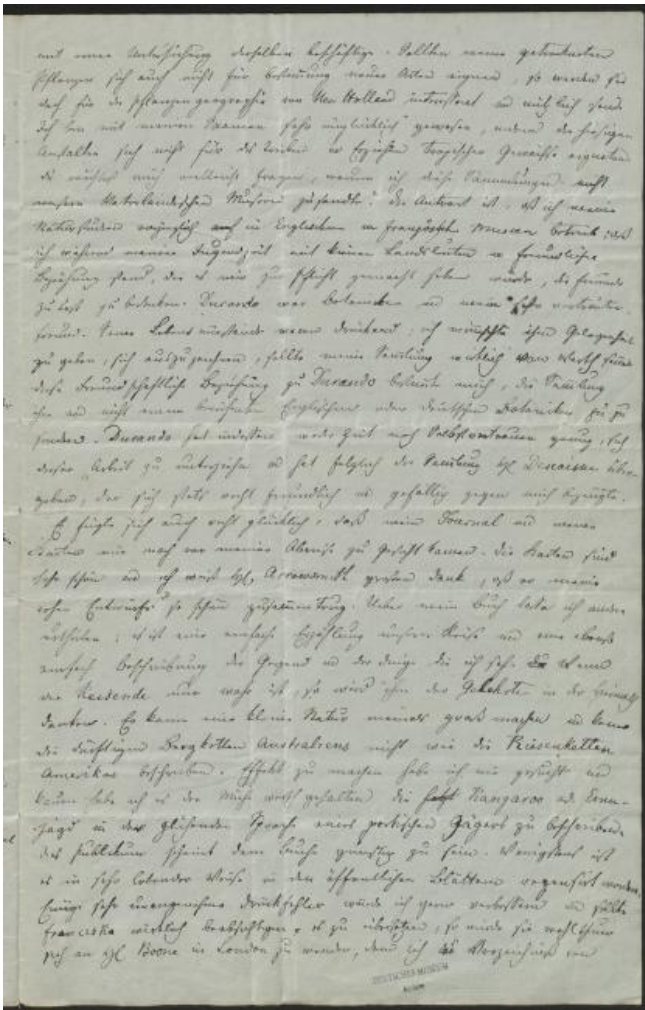 mit einer Untersuchung derselben beschäftigt. Sollten meine getrockneten
Pflanzen sich auch nicht für Bestimmung neuer Arten eignen, so werden sie
doch für die Pflanzengeographie von Neu Holland interessant und nützlich sein.
Ich bin mit meinen Saamen sehr unglücklich gewesen, indem die hiesigen
Anstalten sich nicht für das Ziehen tropischer Gewächse eigneten
Du möchtest mich vielleicht fragen, warum ich diese Sammlungen nicht
unsern Vaterländischen Museen zusandte? Die Antwort ist, daß ich meine
Naturstudien vorzüglich in Englischen und Französischen Museen betrieb; daß
ich während meiner Jugendzeit mit keinen Landsleuten in freundlicher
Beziehung stand, die es mir zur Pflicht gemacht haben würde, die Freunde
zuerst zu bedenken. Durando war Botaniker und mein sehr vertrauter
Freund. Seine Lebensumstände waren drückend; ich wünschte ihm Gelegenheit
zu geben, sich auszuzeichnen, sollte meine Sammlung wirklich von Werth sein.
Diese freundschaftliche Beziehung zu Durando bestimmte mich, die Sammlung
ihm und nicht einem berühmten Englischen oder deutschen Botaniker zu
senden. Durando hat indessen weder Zeit noch Selbstvertrauen genug, sich
dieser Arbeit zu unterziehen und hat folglich die Sammlung Decaisne über-
geben, der sich stets recht freundlich und gefällig gegen mich bezeugte.
Es fügte sich auch recht glücklich, daß mein Journal und meine
Karten mir noch vor meiner Abreise zu Gesicht kamen. Die Karten sind
sehr schön und ich weiß Arrowsmith großen Dank, daß er meine
rohen Entwürfe so schön zusammentrug. Ueber mein Buch lasse ich andre
urtheilen; es ist eine einfache Erzählung unserer Reise und eine ebenso
einfache Beschreibung der Gegend und der Dinge die ich sah. Wenn
der Reisende nur wahr ist, so wird ihm der Gelehrte in der Heimath
danken. Es kann eine kleine Natur niemand groß machen und kann
die dürftigen Bergketten Australiens nicht wie die Riesenketten
Amerikas beschreiben. Effekt zu machen habe ich nie gesucht und
kaum habe ich es der Mühe werth gehalten die Kangaroo und Emu-
Jagd in der glühenden Sprache eines poetischen Jägers zu beschreiben.
Das Publikum scheint dem Buche günstig zu sein. Wenigstens ist
es in sehr lobender Weise in den öffentlichen Blättern recensirt worden.
Einige sehr unangenehme Druckfehler würde ich gern verbessern und sollte
Franciska wirklich beabsichtigen, es zu übersetzen, so würde sie wohlthun
sich an Boone in London zu wenden, dem ich das Verzeichniß von
DEUTSCHES MUSEUM